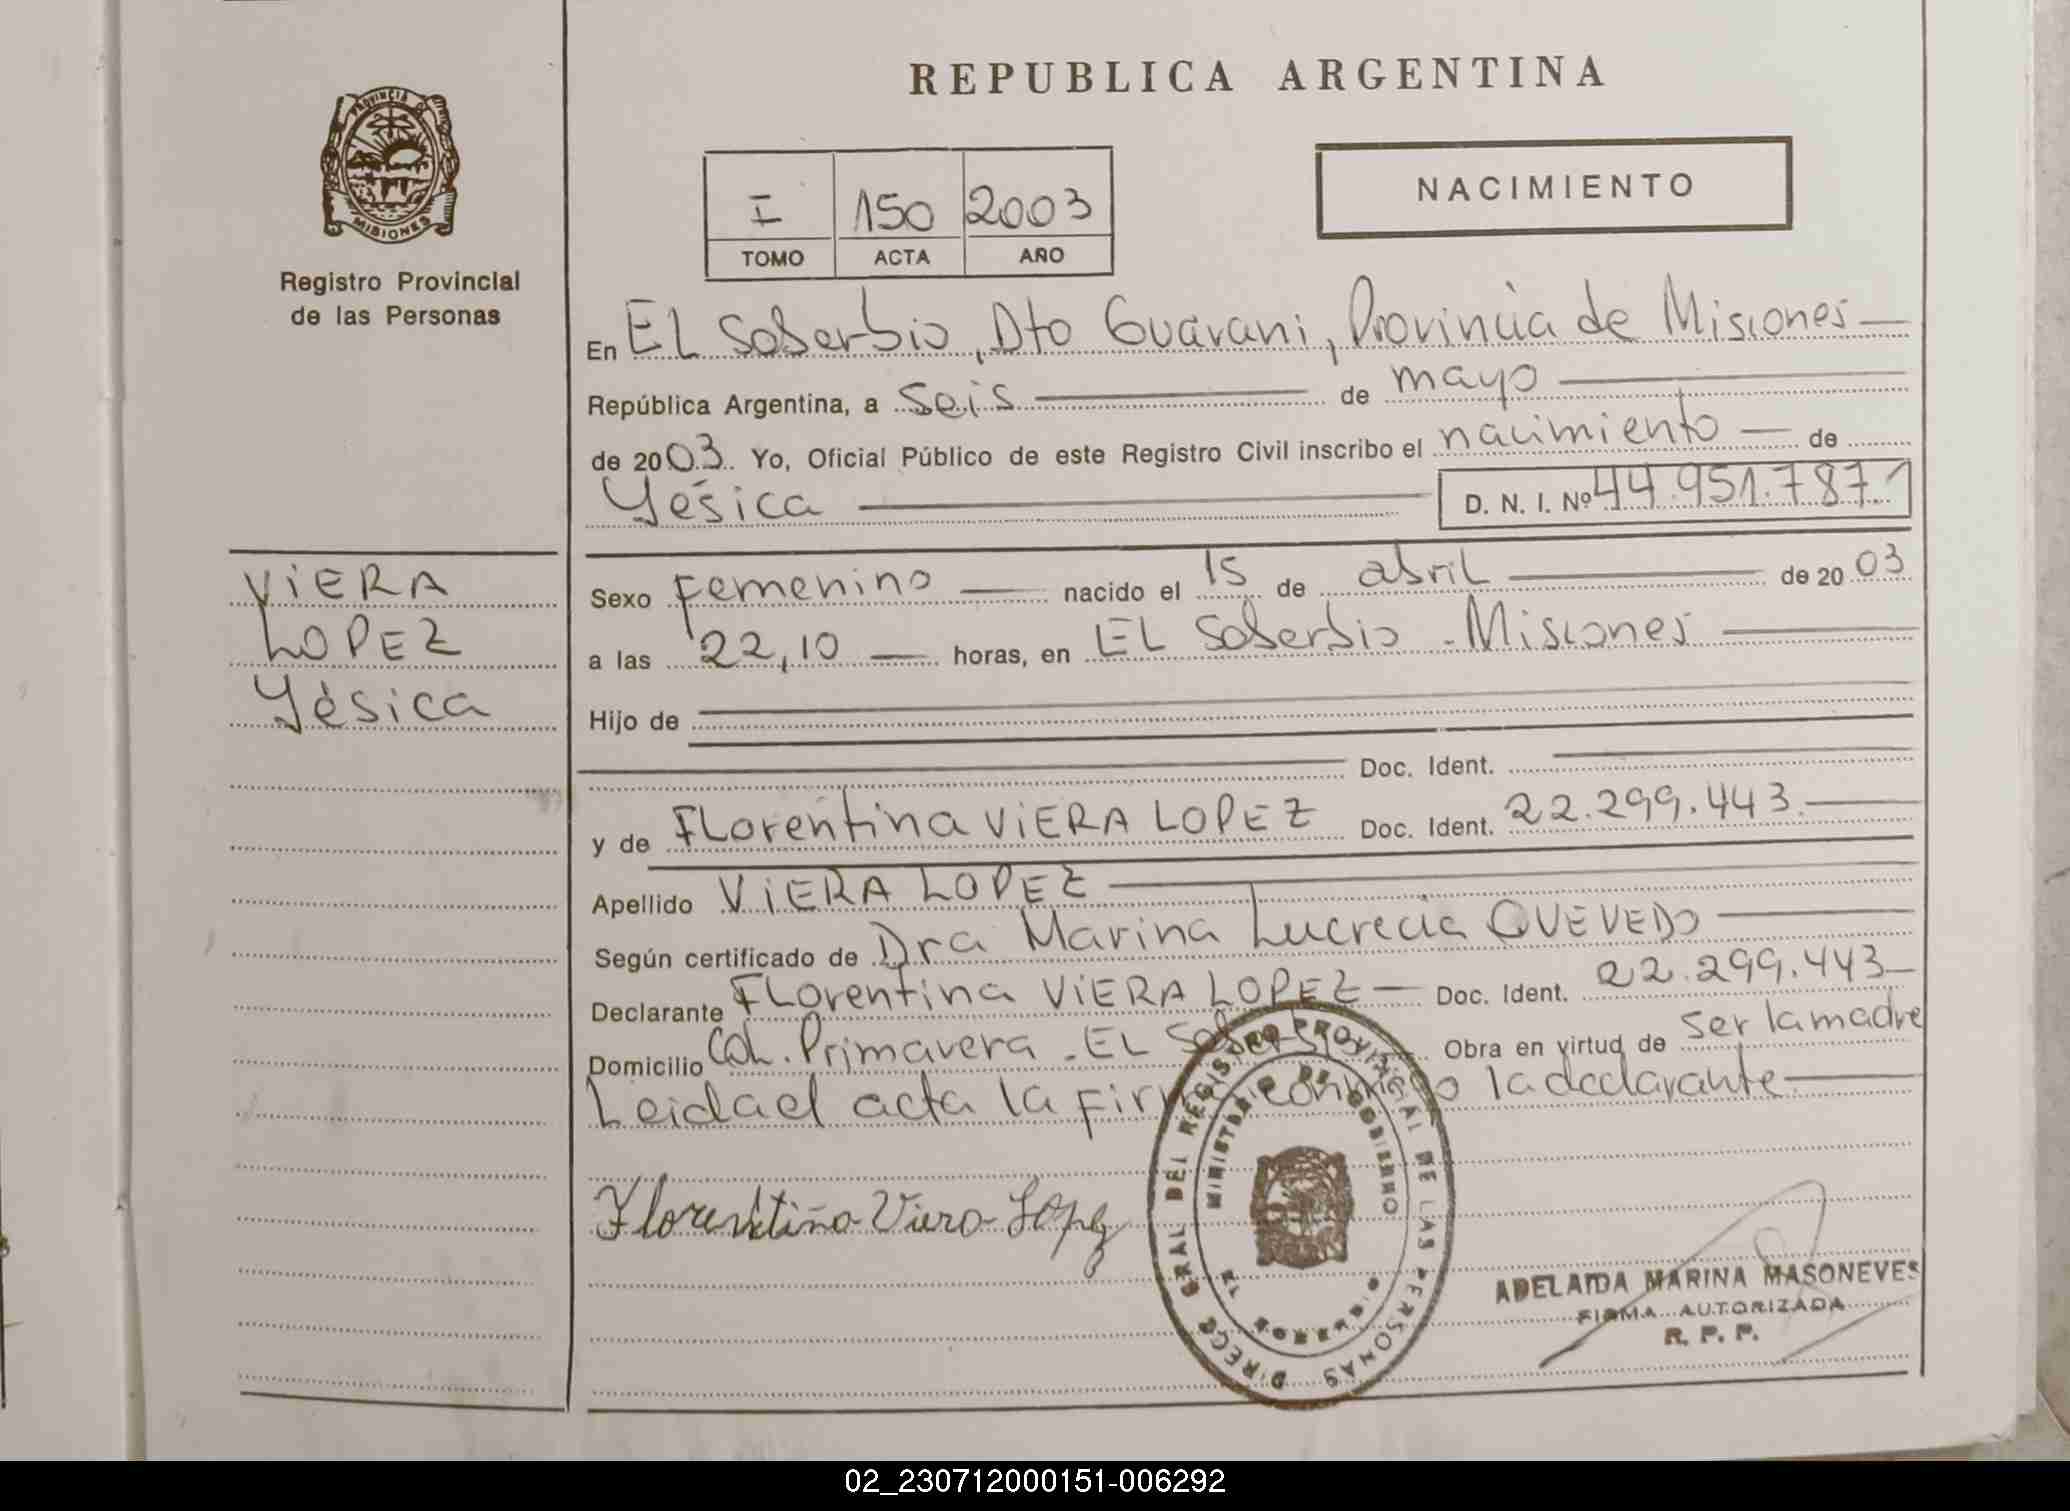 REPUBLICA ARGENTINA
PROVINCIA DE
MISIONES
Registro Provincial
de las Personas
I 150 2003
TOMO ACTA AÑO
NACIMIENTO
En EL Soberbio, Dto Guarani, Provincia de Misiones
República Argentina, a seis de mayo
de 2003. Yo, Oficial Público de este Registro Civil inscribo el nacimiento de
Yésica D. N. I. Nº 44.951.787
VIERA
LOPEZ
Yésica
Sexo Femenino nacido el 15 de abril de 2003
a las 22,10 horas, en EL Soberbio - Misiones
Hijo de
Doc. Ident.
y de Florentina VIERA LOPEZ Doc. Ident. 22.299.443.
Apellido VIERA LOPEZ
Según certificado de Dra Marina Lucrecia QUEVEDO
Declarante Florentina VIERA LOPEZ Doc. Ident. 22.299.443
Domicilio Col. Primavera - EL Soberbio Obra en virtud de ser la madre
Leida el acta la firma conmigo la declarante
Florentina Viera Lopez
DIRECC GRAL DEL REGISTRO PROVINCIAL DE LAS PERSONAS
MINISTERIO DE GOBIERNO
MISIONES
ADELAIDA MARINA MASONEVES
FIRMA AUTORIZADA
R. P. P.
02_230712000151-006292